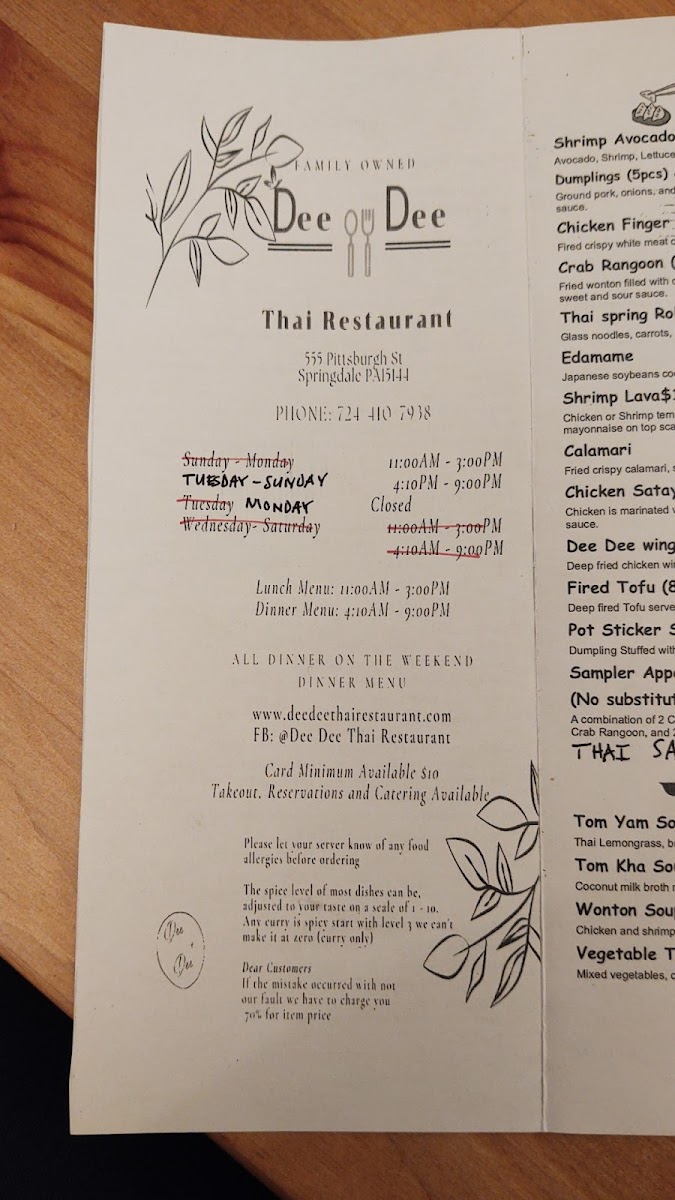 FAMILY OWNED
Dee Dee
Thai Restaurant
555 Pittsburgh St
Springdale PA15144
PHONE: 724 410 7938
Sunday - Monday 11:00AM - 3:00PM
TUESDAY - SUNDAY 4:10PM - 9:00PM
Tuesday MONDAY Closed
Wednesday- Saturday 11:00AM - 3:00PM
4:10AM - 9:00PM
Lunch Menu: 11:00AM - 3:00PM
Dinner Menu: 4:10AM - 9:00PM
ALL DINNER ON THE WEEKEND
DINNER MENU
www.deedeethairestaurant.com
FB: @Dee Dee Thai Restaurant
Card Minimum Available $10
Takeout, Reservations and Catering Available
Please let your server know of any food
allergies before ordering
The spice level of most dishes can be,
adjusted to your taste on a scale of 1 - 10.
Any curry is spicy start with level 3 we can't
make it at zero (curry only)
Dee
Dee
Dear Customers
If the mistake occurred with not
our fault we have to charge you
70% for item price
Shrimp Avocado
Avocado, Shrimp, Lettuce
Dumplings (5pcs)
Ground pork, onions, and
sauce.
Chicken Finger
Fired crispy white meat
Crab Rangoon (
Fried wonton filled with
sweet and sour sauce.
Thai spring
Glass noodles, carrots,
Edamame
Japanese soybeans
Shrimp Lava$
Chicken or Shrimp
mayonnaise on top
Calamari
Fried crispy calamari,
Chicken Satay
Chicken is marinated
sauce.
Dee Dee wing
Deep fried chicken
Fired Tofu (8
Deep fired Tofu serve
Pot Sticker
Dumpling Stuffed with
Sampler
(No
A combination of 2
Crab Rangoon, and
THAI
Tom Yam
Thai Lemongrass,
Tom Kha
Coconut milk broth
Wonton
Chicken and shrimp
Vegetable
Mixed vegetables,